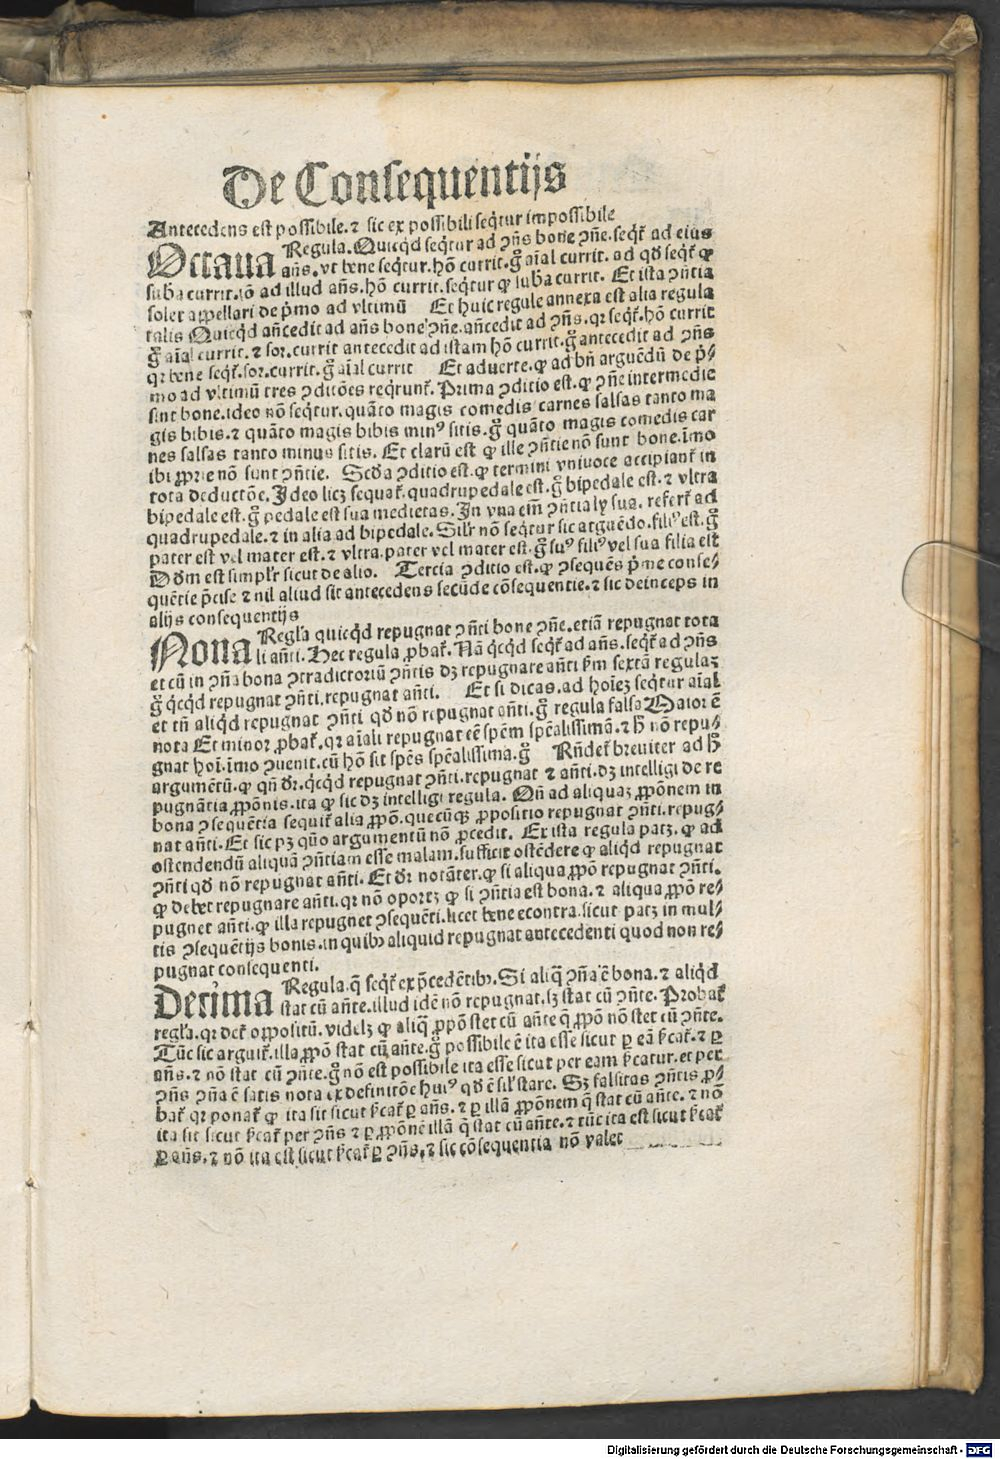 De Consequentijs
Antecedens est possibile.⁊ sic ex possibili seq̃tur impossibile
Octaua Regula. Quicq̃d seq̃tur ad ꝯñs bone ꝯñe.seqr̃ ad eius
añs.vt bene seq̃tur.hõ currit.g̃ aĩal currit. ad qđ seqr̃ ꝙ
suba currit.iõ ad illud añs.hõ currit.seq̃tur ꝙ suba currit. Et ista ꝯñtia
solet appellari de p̃mo ad vltimũ Et huic regule annexa est alia regula
talis Quicq̃d añcedit ad añs bone ꝯñe.añcedit ad ꝯñs.qr seqr̃.hõ currit
g̃ aĩal currit.⁊ sor.currit antecedit ad istam hõ currit.g̃ antecedit ad ꝯñs
qr bene seqr̃.sor.currit.g̃ aĩal currit Et aduerte.ꝙ ad bñ arguẽdũ de p̃-
mo ad vltimũ tres ꝯditiões reqrũnt. Prima ꝯditio est.ꝙ ꝯñe intermedie
sint bone.ideo nõ seq̃tur.quãto magis comedis carnes salsas tanto ma
gis bibis.⁊ quãto magis bibis minꝰ sitis.g̃ quãto magis comedis car
nes salsas tanto minus sitis. Et clarũ est ꝙ ille ꝯñtie nõ sunt bone.imo
ibi ꝓprie nõ sunt ꝯñtie. Scđa ꝯditio est.ꝙ termini vniuoce accipiant̃ in
tota deductõe. Ideo licꝫ sequat̃.quadrupedale est.g̃ bipedale est.⁊ vltra
bipedale est.g̃ pedale est sua medietas. In vna eĩm ꝯñtia ly sua. refert̃ ad
quadrupedale.⁊ in alia ad bipedale. Silr̃ nõ seq̃tur sic arguẽdo.filiꝰ est.g̃
pater est vel mater est.⁊ vltra.pater vel mater est.g̃ suꝰ filiꝰ vel sua filia est
Dđm est simplr̃ sicut de alio. Tercia ꝯditio est.ꝙ ꝯsequẽs p̃me conse-
quẽtie p̃cise ⁊ nil aliud sit antecedens secũde cõsequentie.⁊ sic deinceps in
alijs consequentijs
Nona Regl̃a quicq̃d repugnat ꝯñti bone ꝯñe.etiã repugnat tota
li añti. Hec regula ꝓbat̃. Nã q̃cq̃d seqr̃ ad añs.seqr̃ ad ꝯñs
et cũ in ꝯñã bona ꝯtradictoriũ ꝯñtis dꝫ repugnare añti ẜm sextã regulaꝫ
g̃ q̃cq̃d repugnat ꝯñti.repugnat añti. Et si dicas.ad hoĩeꝫ seq̃tur aĩal
et tñ aliq̃d repugnat ꝯñti qđ nõ repugnat añti.g̃ regula falsa Maior ẽ
nota Et minor ꝓbat̃.qr aĩali repugnat eẽ spẽm spẽalissimã.⁊ ħ nõ repu-
gnat hoĩ.imo ꝯuenit.cũ hõ sit spẽs spẽalissima.g̃ Rñdet̃ breuiter ad ħ
argumẽtũ.ꝙ qñ đr.q̃cq̃d repugnat ꝯñti.repugnat ⁊ añti.dꝫ intelligi de re
pugnãtia ꝓpõnis.ita ꝙ sic dꝫ intelligi regula. Qñ ad aliquaꝫ ꝓpõnem in
bona ꝯsequẽtia sequit̃ alia ꝓpõ.quecũqꝫ ꝓpositio repugnat ꝯñti.repug-
nat añti. Et sic pꝫ quõ argumentũ nõ ꝓcedit. Ex ista regula patꝫ.ꝙ ad
ostendendũ aliquã ꝯñtiam esse malam.sufficit ostẽdere ꝙ aliq̃d repugnat
ꝯñti qđ nõ repugnat añti. Et đr notãter.ꝙ si aliqua ꝓpõ repugnat ꝯñti.
ꝙ debet repugnare añti.qr nõ oportꝫ ꝙ si ꝯñtia est bona.⁊ aliqua ꝓpõ re-
pugnet añti.ꝙ illa repugnet ꝯsequẽti.licet bene econtra.sicut patꝫ in mul-
tis ꝯsequẽtijs bonis.in quibꝰ aliquid repugnat antecedenti quod non re-
pugnat consequenti.
Decima Regula.q̃ seqr̃ ex p̃cedẽtibꝰ. Si aliq̃ ꝯñã ẽ bona.⁊ aliq̃d
stat cũ añte.illud idẽ nõ repugnat.sꝫ stat cũ ꝯñte. Probat̃
regl̃a.qr det̃ oppositũ.videlꝫ ꝙ aliq̃ ꝓpõ stet cũ añte q̃ ꝓpõ nõ stet cũ ꝯñte.
Tũc sic arguit̃.illa ꝓpõ stat cũ añte.g̃ possibile ẽ ita esse sicut ꝑ eã ẜcat̃.⁊ ꝑ
añs.⁊ nõ stat cũ ꝯñte.g̃ nõ est possibile ita esse sicut per eam ẜcatur.et per
ꝯñs ꝯñã ẽ satis nota ex definitõe huiꝰ qđ ẽ sil̃ stare. Sꝫ falsitas ꝯñtis ꝓ-
bat̃ qr ponat̃ ꝙ ita sit sicut ẜcat̃ ꝑ añs.⁊ ꝑ illã ꝓpõnem q̃ stat cũ añte.⁊ nõ
ita sit sicut ẜcat̃ per ꝯñs ⁊ ꝑ ꝓpõnẽ illã q̃ stat cũ añte.⁊ tũc ita est sicut ẜcat̃
ꝑ añs.⁊ nõ ita est sicut ẜcat̃ ꝑ ꝯñs.⁊ sic cõsequentia nõ valet
Digitalisierung gefördert durch die Deutsche Forschungsgemeinschaft - DFG